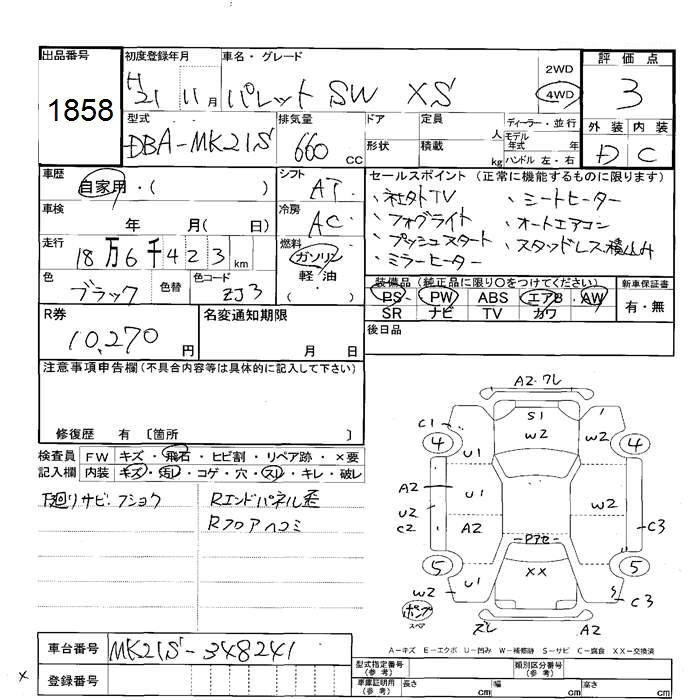 出品番号 初度登録年月 車名・グレード 評価点
1858 H21 11月 パレット SW XS 2WD 4WD 3
型式 排気量 ドア 定員 人 ディーラー・並行 外装 内装
DBA-MK21S 660 CC 形状 積載 kg モデル年式 年 ハンドル 左・右 D C
車歴 自家用・( ) シフト AT セールスポイント (正常に機能するものに限ります)
車検 年 月( 日) 冷房 AC ・社外TV ・シートヒーター
・フォグライト ・オートエアコン
走行 18万6千423km 燃料 ガソリン 軽油 ( ) ・プッシュスタート ・スタッドレス積込み
・ミラーヒーター
色 ブラック 色替 色コード ZJ3 装備品(純正品に限り○をつけてください) 新車保証書
PS PW ABS エアB AW 有・無
SR ナビ TV カワ
R券 10,270円 名変通知期限 月 日 後日品
注意事項申告欄(不具合内容等は具体的に記入して下さい)
修復歴 有 〔箇所 〕
検査員 FW キズ・飛石・ヒビ割・リペア跡・×要
記入欄 内装 キズ・汚レ・コゲ・穴・スレ・キレ・破レ
下廻りサビ・フショク Rエンドパネル歪
Rフロアヘコミ
A2・ワレ
S1
C1 W2
4 U1 4
A2 U1 W2
U2
C2 A2 C3
PアセC
5 XX 5
W2 U1 S C3
ポンプ
スペア ズレ A2
A-キズ E-エクボ U-凹み W-補修跡 S-サビ C-腐食 XX-交換済
車台番号 MK21S-348241
登録番号
型式指定番号(参考) 類別区分番号(参考)
車庫証明用(参考) 長さ cm 幅 cm 高さ cm